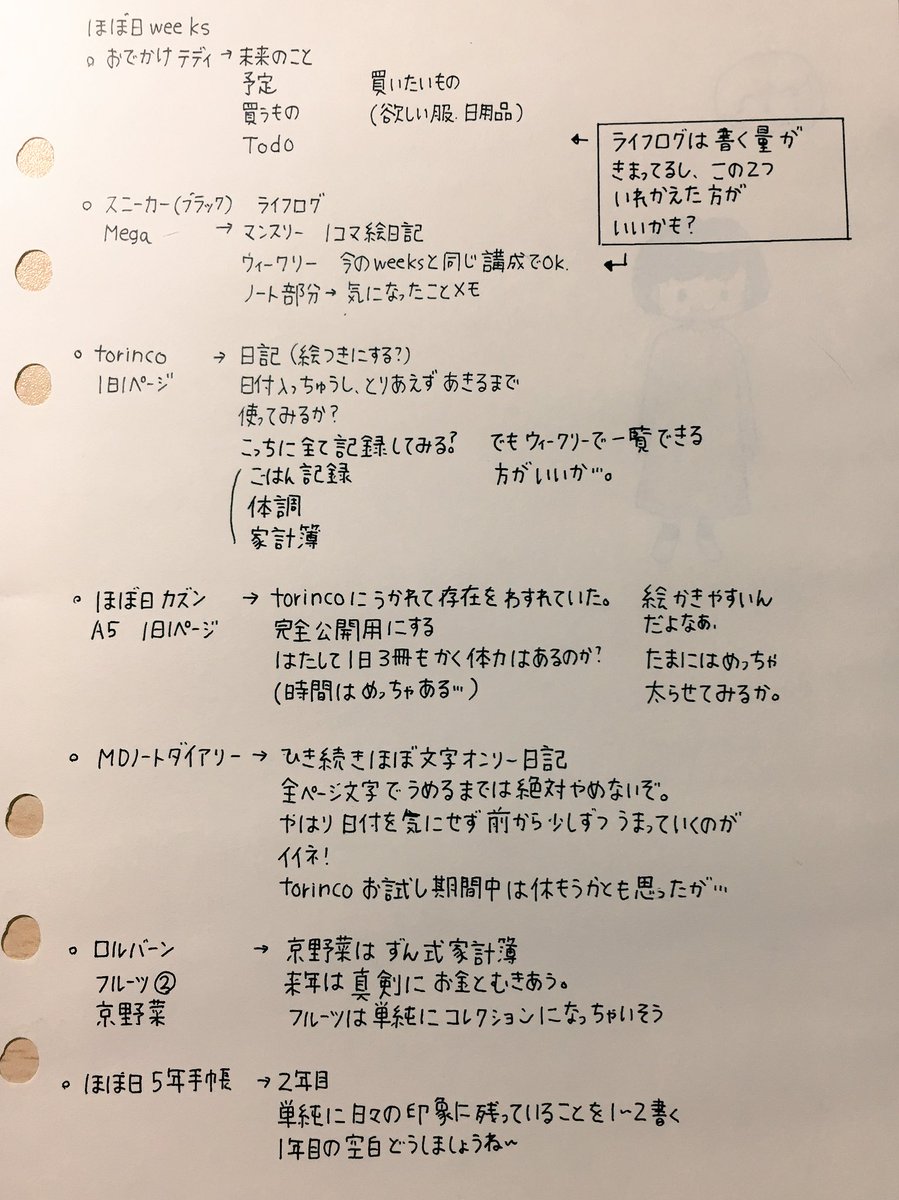 ほぼ日 weeks
○ おでかけテディ → 未来のこと
予定 買いたいもの
買うもの (欲しい服.日用品)
Todo ←
ライフログは書く量が
きまってるし、この2つ
いれかえた方が
いいかも?
○ スニーカー(ブラック) ライフログ
Mega → マンスリー 1コマ絵日記
ウィークリー 今のweeksと同じ講成でOK.
ノート部分→ 気になったことメモ
○ torinco → 日記(絵つきにする?)
1日1ページ 日付入っちゅうし、とりあえず あきるまで
使ってみるか?
こっちに全て記録してみる? でもウィークリーで一覧できる
ごはん記録 方がいいか…。
体調
家計簿
○ ほぼ日カズン → torincoにうかれて存在をわすれていた。 絵かきやすいん
A5 1日1ページ 完全公開用にする だよなあ.
はたして1日3冊もかく体力はあるのか? たまにはめっちゃ
(時間はめっちゃある…) 太らせてみるか。
○ MDノートダイアリー → ひき続きほぼ文字オンリー日記
全ページ文字でうめるまでは絶対やめないぞ。
やはり日付を気にせず前から少しずつうまっていくのが
イイネ!
torinco お試し期間中は休もうかとも思ったが…
○ ロルバーン → 京野菜はずん式家計簿
フルーツ② 来年は真剣にお金とむきあう。
京野菜 フルーツは単純にコレクションになっちゃいそう
○ ほぼ日5年手帳 → 2年目
単純に日々の印象に残っていることを1~2書く
1年目の空白どうしましょうね~